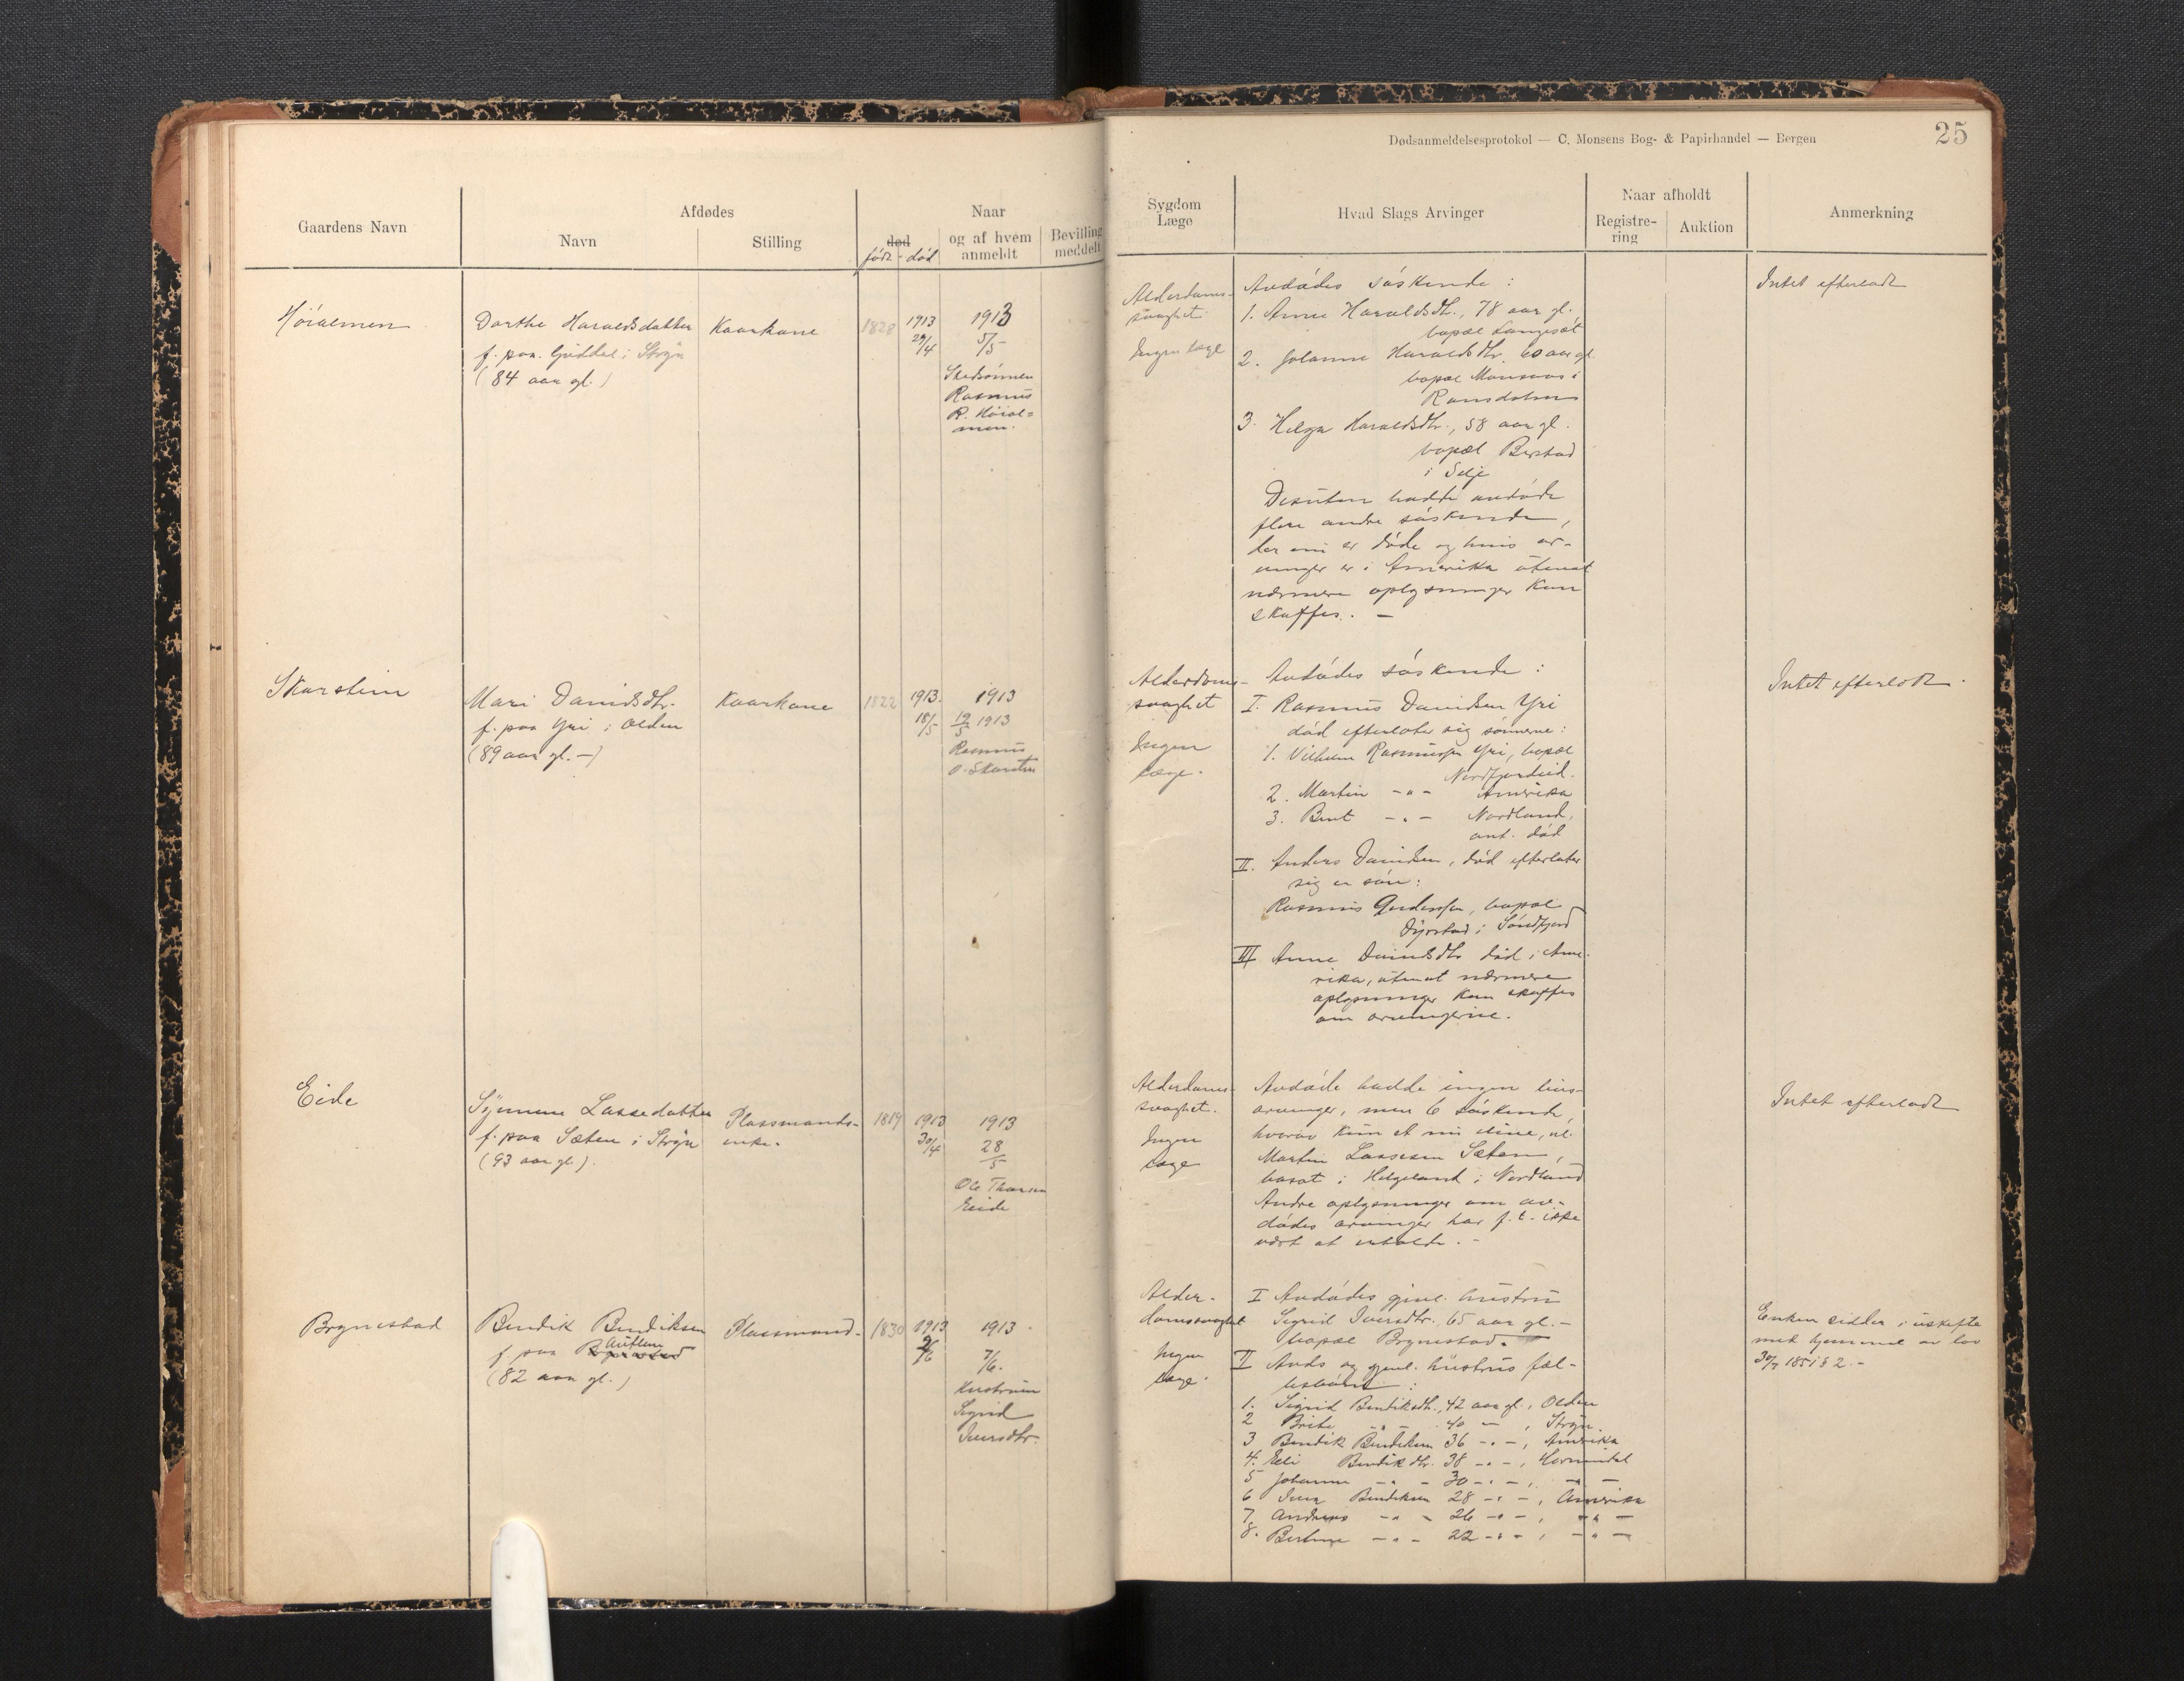 Dødsanmeldelsesprotokol — C. Monsens Bog- & Papirhandel — Bergen
25
Gaardens Navn
Afdødes
Navn
Stilling
Naar
død
født - død
og af hvem
anmeldt
Bevilling
meddelt
Sygdom
Læge
Hvad Slags Arvinger
Naar afholdt
Registre-
ring
Auktion
Anmerkning
Höialmen
Dorthe Haraldsdatter
f. paa Gjddal i Stryn
(84 aar gl.)
Kaarkone
1828
1913
29/4
1913
5/5
Stedsönnen
Rasmus
R. Höial=
men.
Alderdoms-
svaghet
Ingen læge
Avdödes söskende :
1. Anne Haraldsdtr., 78 aar gl.,
bopæl Langesæt
2. Johanne Haraldsdtr. 60 aar gl
bopæl Monsaas i
Romsdalen
3. Helga Haraldsdtr., 58 aar gl.
bopæl Berstad
i Selje
Desuten hadde avdöde
flere andre söskende,
der nu er döde og hvis ar-
vinger er i Amerika utenat
nærmere oplysninger kan
skaffes. —
Intet efterladt
Skarstein
Mari Danielsdtr.
f. paa Yri i Olden
(89 aar gl. —)
Kaarkone
1822
1913.
18/5
1913
19/5 1913
Rasmus
O. Skarsten
Alderdoms-
svaghet
Ingen
læge.
Avdödes söskende :
I. Rasmus Danielsen Yri
död efterlater sig sönnerne :
1. Vilhelm Rasmussen Yri, bopæl
Nordfjordeid.
2. Martin — " — Amerika
3. Bent — " — Nordland,
ant. död
II. Anders Danielsen, död efterlater
sig en sön :
Rasmus Anderssen, bopæl
Dyrstad i Söndfjord
III Anne Danielsdtr död i Ame-
rika, utenat nærmere
oplysninger kan skaffes
om arvingerne.
Intet efterladt.
Eide
Synneve Lassedatter
f. paa Sæten i Stryn
(93 aar gl.).
Plassmands-
enke.
1819
1913
30/4
1913
28/5
Ole Thorsen
Eide
Alderdoms-
svaghet.
Ingen
læge
Avdöde hadde ingen livs-
arvinger, men 6 söskende,
hvorav kun et nu ilive, nl.
Martin Lassesen Sæten,
bosat i Helgeland i Nordland
Andre oplysninger om av-
dödes arvinger har f. t. ikke
vært at erholde. —
Intet efterladt
Brynestad
Bendik Bendiksen
f. paa Brynestad Auflem
(82 aar gl.)
Plassmand.
1830
1913
2/6
1913
7/6.
Hustruen
Sigrid
Iversdtr.
Alder-
domssvaghet
Ingen
læge.
I Avdödes gjenl. hustru
Sigrid Iversdtr. 65 aar gl. —
bopæl Brynestad.
II Avds og gjenl. hustrus fæl-
lesbörn :
1. Sigrid Bendiksdtr., 42 aar gl., Olden
2 Brite — " — 40 — , Stryn.
3 Bendik Bendiksen 36 — " — , Amerika
4. Eli Bendiksdtr. 38 — " — , Hornindal
5 Johanne — " — 30 — " — , — " —
6 Iver Bendiksen 28 — " — , Amerika
7. Andreas — " — 26 — " — , — " —
8. Bertine — " — 22 — " — , — " —
Enken sidder i uskifte
med hjemmel av lov
30/7 1851 § 2. —